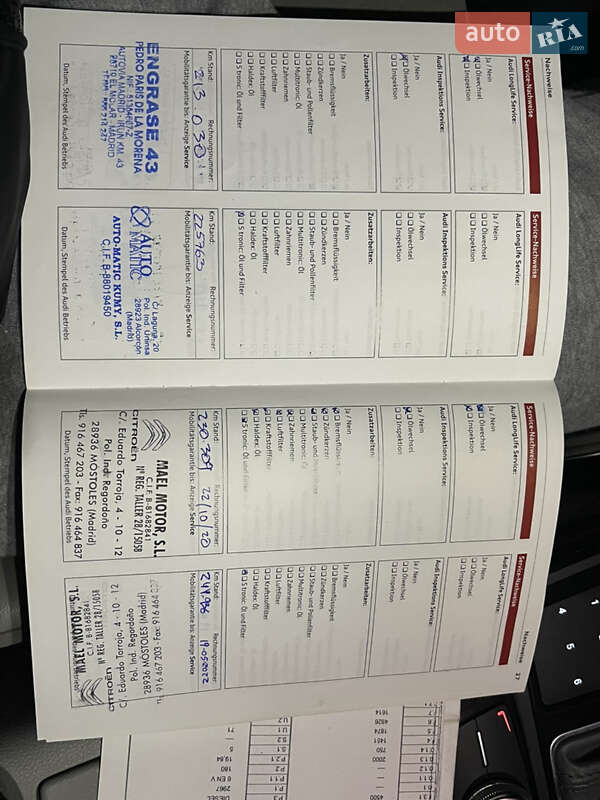 auto RIA.com
Nachweise
Service-Nachweise
Audi LongLife Service:
Ja / Nein
Ölwechsel
Inspektion
Audi Inspektions Service:
Ja / Nein
Ölwechsel
Inspektion
Zusatzarbeiten:
Ja / Nein
Bremsflüssigkeit
Zündkerzen
Staub- und Pollenfilter
Multitronic: Öl
Zahnriemen
Luftfilter
Kraftstofffilter
Haldex: Öl
S tronic: Öl und Filter
Km Stand:
Rechnungsnummer:
213.030
Mobilitätsgarantie bis: Anzeige Service
ENGRASE 43
PEDRO PARIS DE LA MORENA
AUTOVIA MADRID - IRUN KM. 43
Datum, Stempel des Audi Betriebs
Service-Nachweise
Audi LongLife Service:
Ja / Nein
Ölwechsel
Inspektion
Audi Inspektions Service:
Ja / Nein
Ölwechsel
Inspektion
Zusatzarbeiten:
Ja / Nein
Bremsflüssigkeit
Zündkerzen
Staub- und Pollenfilter
Multitronic: Öl
Zahnriemen
Luftfilter
Kraftstofffilter
Haldex: Öl
S tronic: Öl und Filter
Km Stand:
Rechnungsnummer:
225763
Mobilitätsgarantie bis: Anzeige Service
AUTO MATIC
C/ Laguna, 20
Pol. Ind. Urtinsa
28923 Alcorcón
(Madrid)
AUTO-MATIC KUMY, S.L.
C.I.F. B-88019450
Datum, Stempel des Audi Betriebs
Service-Nachweise
Audi LongLife Service:
Ja / Nein
Ölwechsel
Inspektion
Audi Inspektions Service:
Ja / Nein
Ölwechsel
Inspektion
Zusatzarbeiten:
Ja / Nein
Bremsflüssigkeit
Zündkerzen
Staub- und Pollenfilter
Multitronic: Öl
Zahnriemen
Luftfilter
Kraftstofffilter
Haldex: Öl
S tronic: Öl und Filter
Km Stand:
Rechnungsnummer:
230.309 22/10/20
Mobilitätsgarantie bis: Anzeige Service
MAEL MOTOR, S.L.
C.I.F. B-81682841
Nº REG. TALLER 28/15058
CITROËN
C/. Eduardo Torroja, 4 - 10 - 12
Pol. Ind. Regordoño
28936 MOSTOLES (Madrid)
Tls. 916 467 203 - Fax: 916 464 837
Datum, Stempel des Audi Betriebs
Nachweise 27
Service-Nachweise
Audi LongLife Service:
Ja / Nein
Ölwechsel
Inspektion
Audi Inspektions Service:
Ja / Nein
Ölwechsel
Inspektion
Zusatzarbeiten:
Ja / Nein
Bremsflüssigkeit
Zündkerzen
Staub- und Pollenfilter
Multitronic: Öl
Zahnriemen
Luftfilter
Kraftstofffilter
Haldex: Öl
S tronic: Öl und Filter
Km Stand:
Rechnungsnummer:
19-05-2022
Mobilitätsgarantie bis: Anzeige Service
MAEL MOTOR, S.L.
CITROËN
Pol. Ind. Regordoño
28936 MOSTOLES (Madrid)
DIESEL
2967
6 EN V
180
19,84
5
71
4500
2000
750
1451
1874
4826
1614